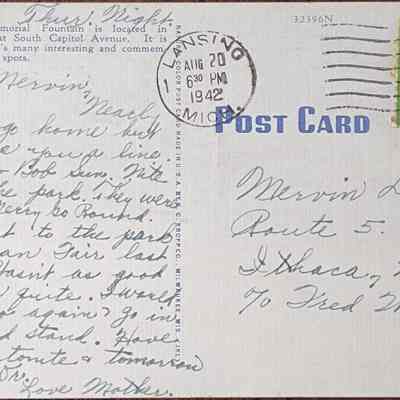 Thur. Night.
emorial Fountain is located in
at South Capitol Avenue. It is
's many interesting and commem
spots.
32396N
LANSING
AUG 20
6 30 PM
1942
MICH.
1
POST CARD
Mervin,
Nearly
go home but
you a line.
Bob Sun. Nite
the park. They were
Merry Go Round.
to the park
Fair last
Wasn't as good
quite. I would
go again? go in
stand. Have
tonite & tomorrow
Love Mother.
Mervin
Route 5.
Ithaca,
℅ Fred